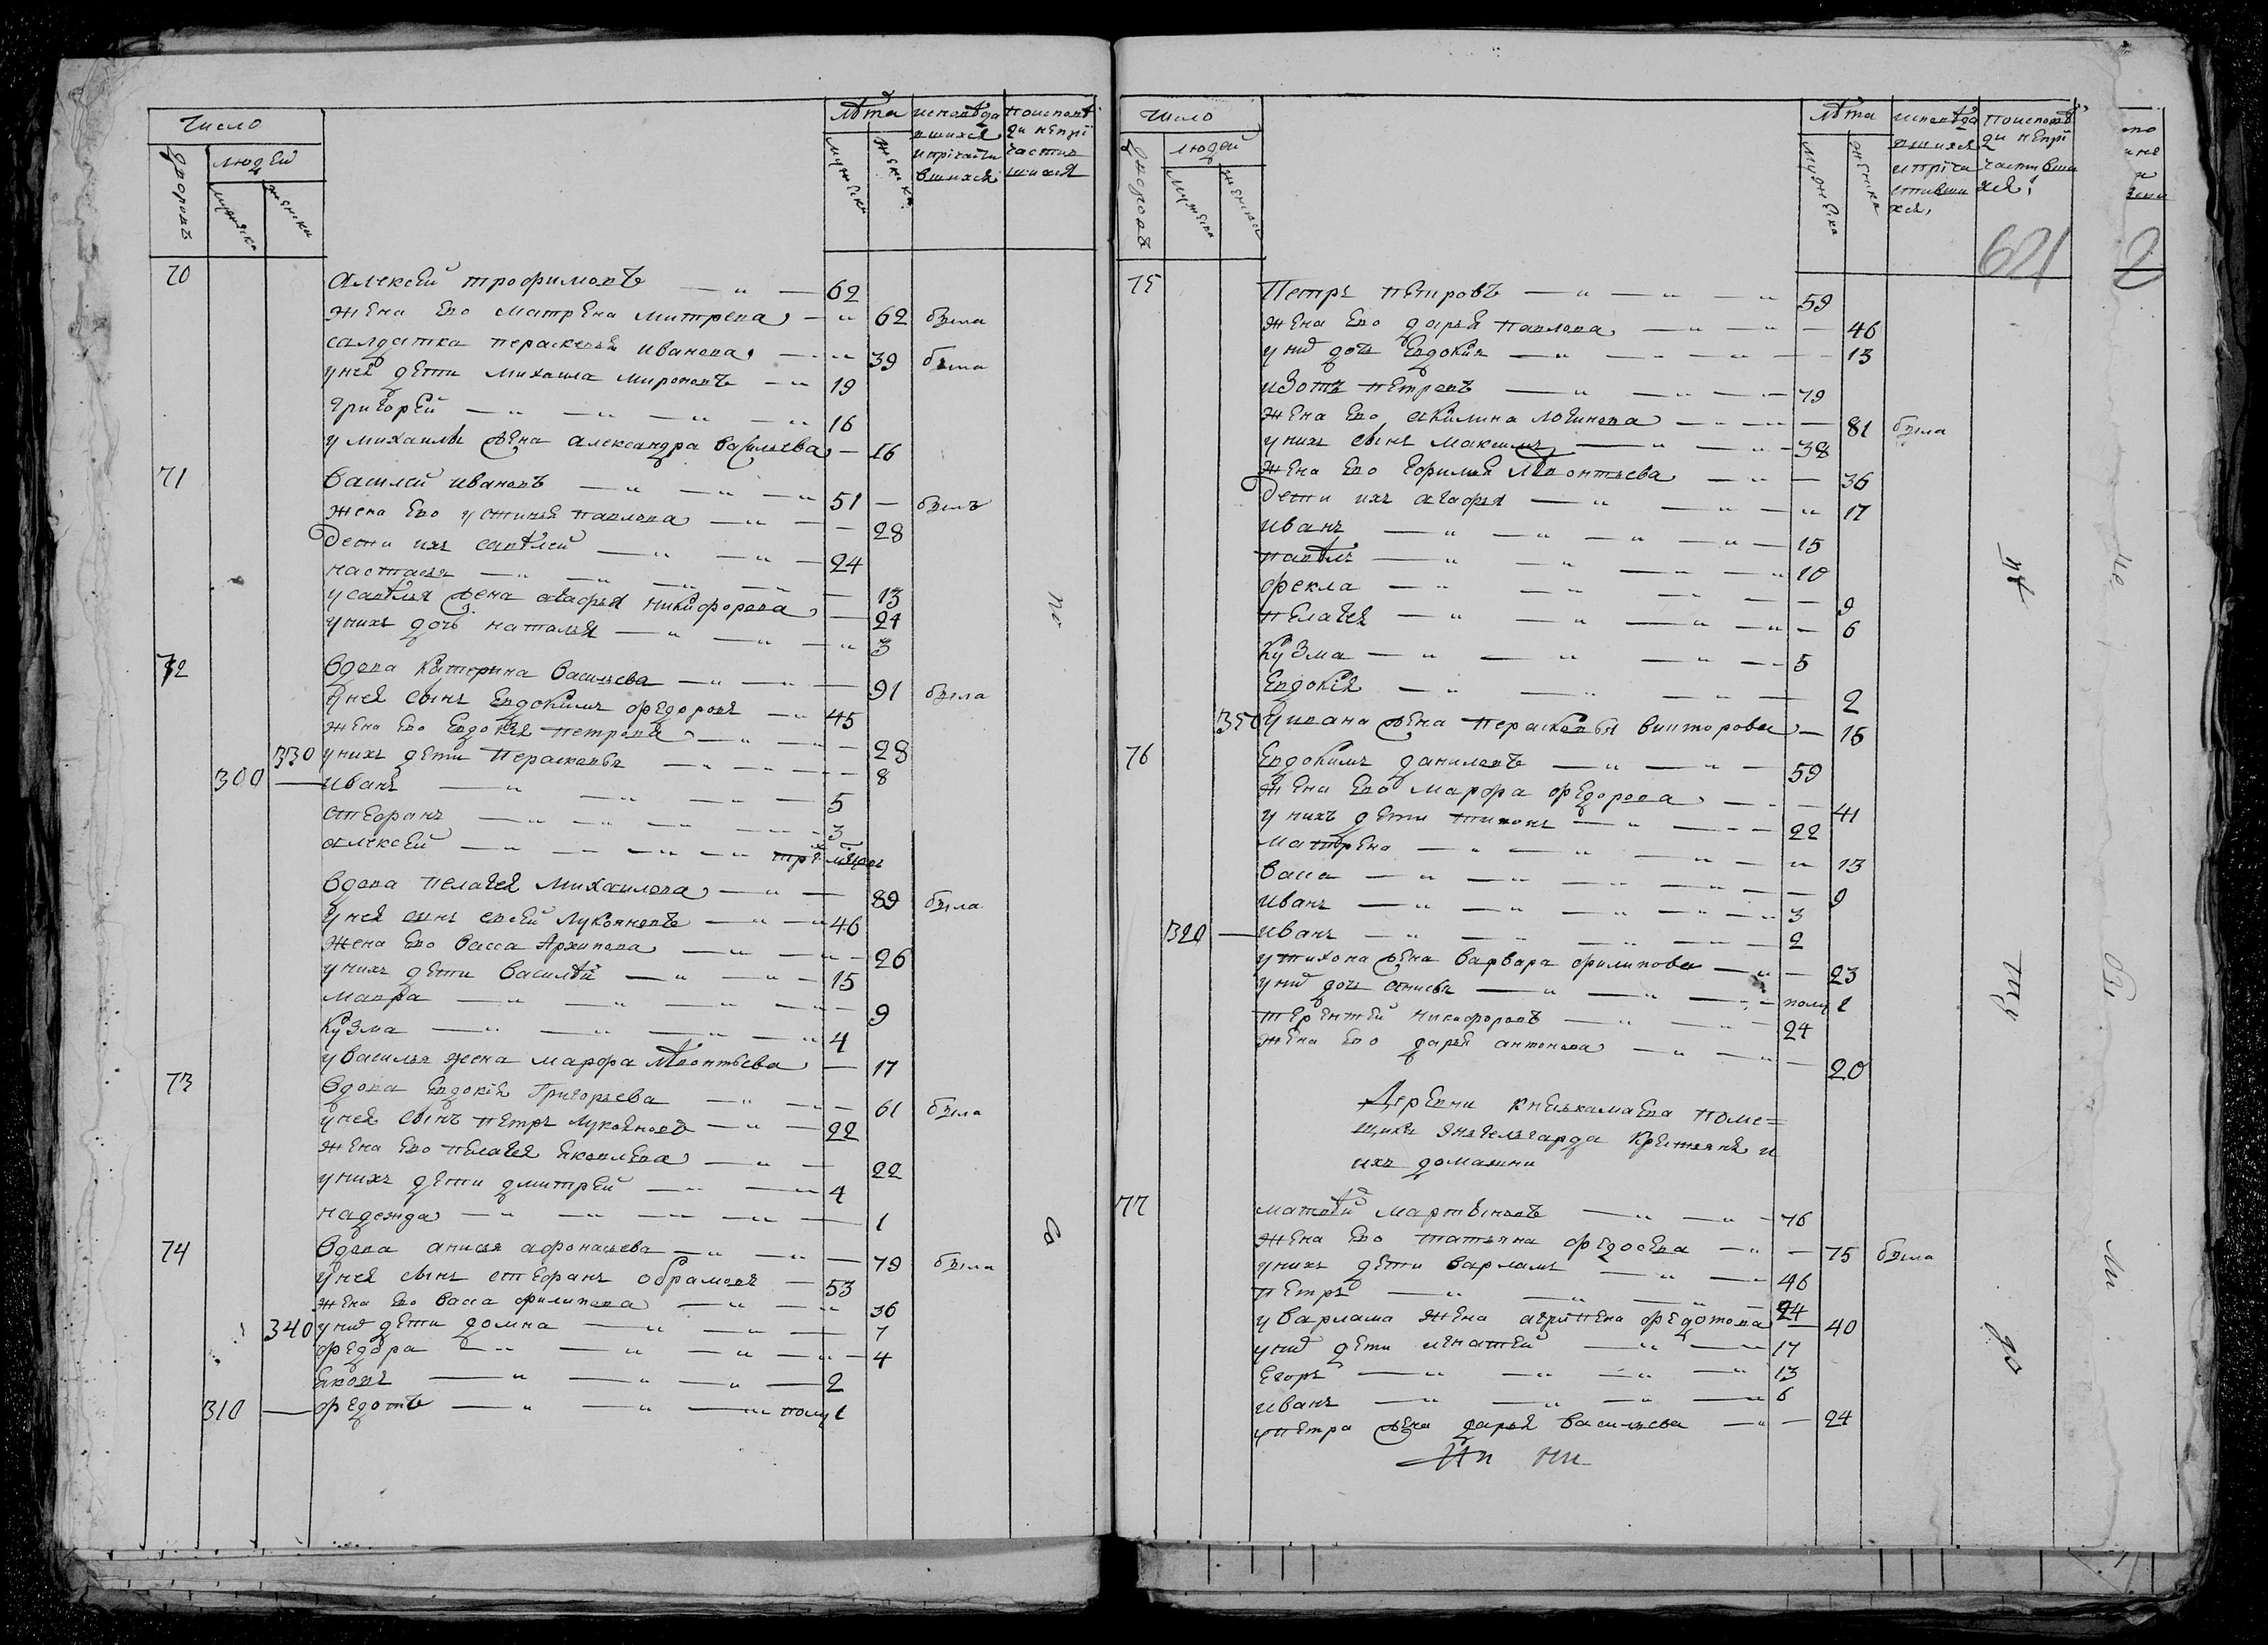 Число
лѣта
исповѣда
поисповѣ
вшихся
ди непрі
людей
ипричасти
частив
вшихся
шихся
дворовъ
мужеска
женска
мужеска
женска
70
Алексей трофимовъ 62
жена ево матрена митрева 62 была
салдатка перасковья иванова 39 была
у ней дети михаила мироновъ 19
григорей 16
у михаилы жена александра васильева 16
71
василей ивановъ 51 былъ
жена ево устинья павлова 28
дети ихъ савѣлей 24
настасья 13
у савѣлья жена агафья никифорова 24
у нихъ дочь наталья 3
72
вдова катерина васильева 91 была
у ней сынъ евдокимъ федоровъ 45
жена ево евдокия петрова 28
330 у нихъ дети перасковья 8
300 иванъ 5
стефанъ 3
алексей три месяца
вдова пелагея михайлова 89 была
у ней сынъ евсей лукояновъ 46
жена ево васса архипова 26
у нихъ дети василѣй 15
мавра 9
кузма 4
у василья жена марфа лѣонтьева 17
73
вдова евдокія григорьева 61 была
у ней сынъ петръ лукояновъ 22
жена ево пелагея яковлева 22
у нихъ дети дмитрей 4
надежда 1
74
вдова анисья афонасьева 79 была
у ней сынъ стефанъ обрамовъ 53
жена ево васса филипова 36
340 у них дети домна 7
федора 4
яковъ 2
310 федотъ полу 1
по
са
число
лѣта
исповѣда
поисповѣ
вшихся
ди непрі
людей
ипричи
частивши
стивши
хся
хся
дворовъ
мужеска
женска
мужеска
женска
621
75
Петръ петровъ 59
жена ево дарья павлова 46
у них дочь евдокия 13
изотъ петровъ 79
жена ево акилина логинова 81 была
у нихъ сынъ максимъ 38
жена ево ефимья лѣонтьева 36
дети ихъ агафья 17
иванъ 15
павѣлъ 10
фекла 9
пелагея 6
кузма 5
евдокія 2
350 у ивана жена перасковья викторова 16
76
евдокимъ даниловъ 59
жена ево марфа федорова 41
у нихъ дети тихонъ 22
матрена 13
васса 9
иванъ 3
320 иванъ 2
у тихона жена варвара филипова 23
у них дочь анисья полу 1
терентей никифоровъ 24
жена ево дарья антонова 20
Деревни княжкамаева поме=
щика энгельгарда крестьяня и
ихъ домашни
77
матвѣй мартыновъ 76
жена ево татьяна федосева 75 была
у нихъ дети варламъ 46
петръ 24
у варлама жена агрипена федотова 40
у них дети игнатей 17
егоръ 13
иванъ 6
у петра жена дарья васильева 24
ту
до